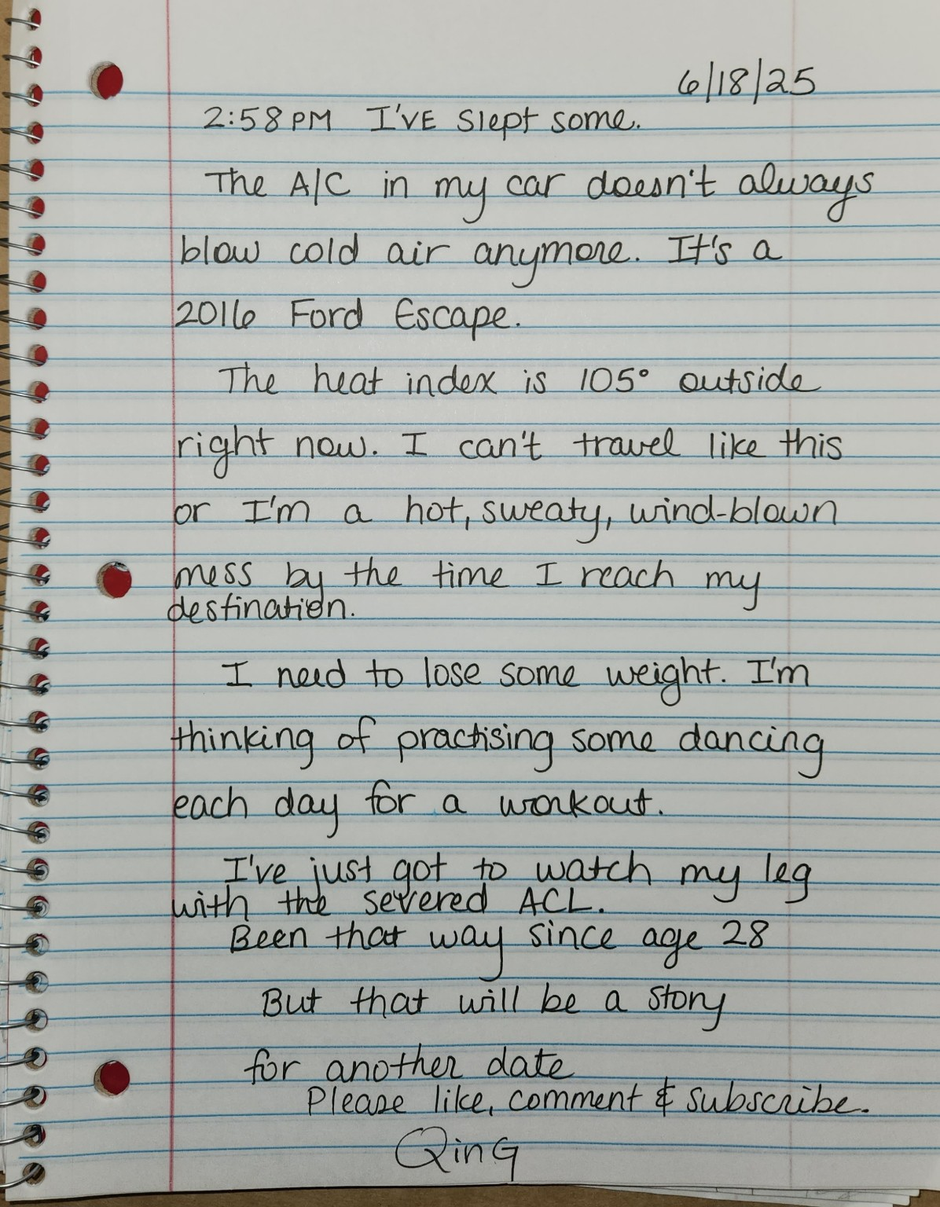 6/18/25
2:58PM I'VE slept some.
The A/C in my car doesn't always
blow cold air anymore. It's a
2016 Ford Escape.
The heat index is 105° outside
right now. I can't travel like this
or I'm a hot, sweaty, wind-blown
mess by the time I reach my
destination.
I need to lose some weight. I'm
thinking of practising some dancing
each day for a workout.
I've just got to watch my leg
with the severed ACL.
Been that way since age 28
But that will be a story
for another date
Please like, comment & subscribe.
QinG